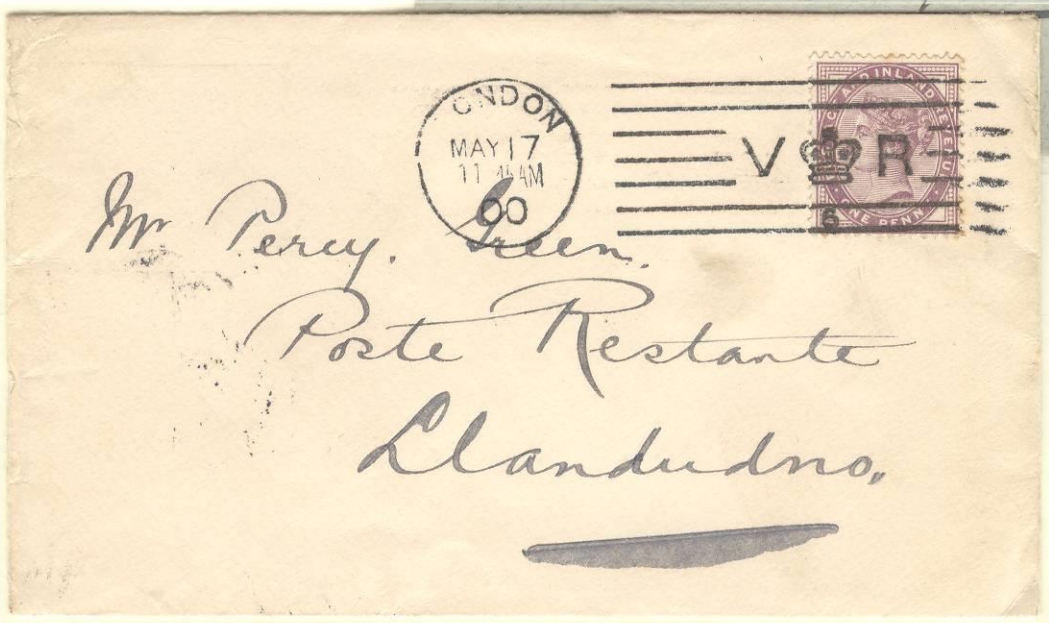 ONDON
MAY 17
11 45 AM
00
V R
6
AND INLAND REVENUE
ONE PENNY
Mr Percy. Green.
Poste Restante
Llandudno,,